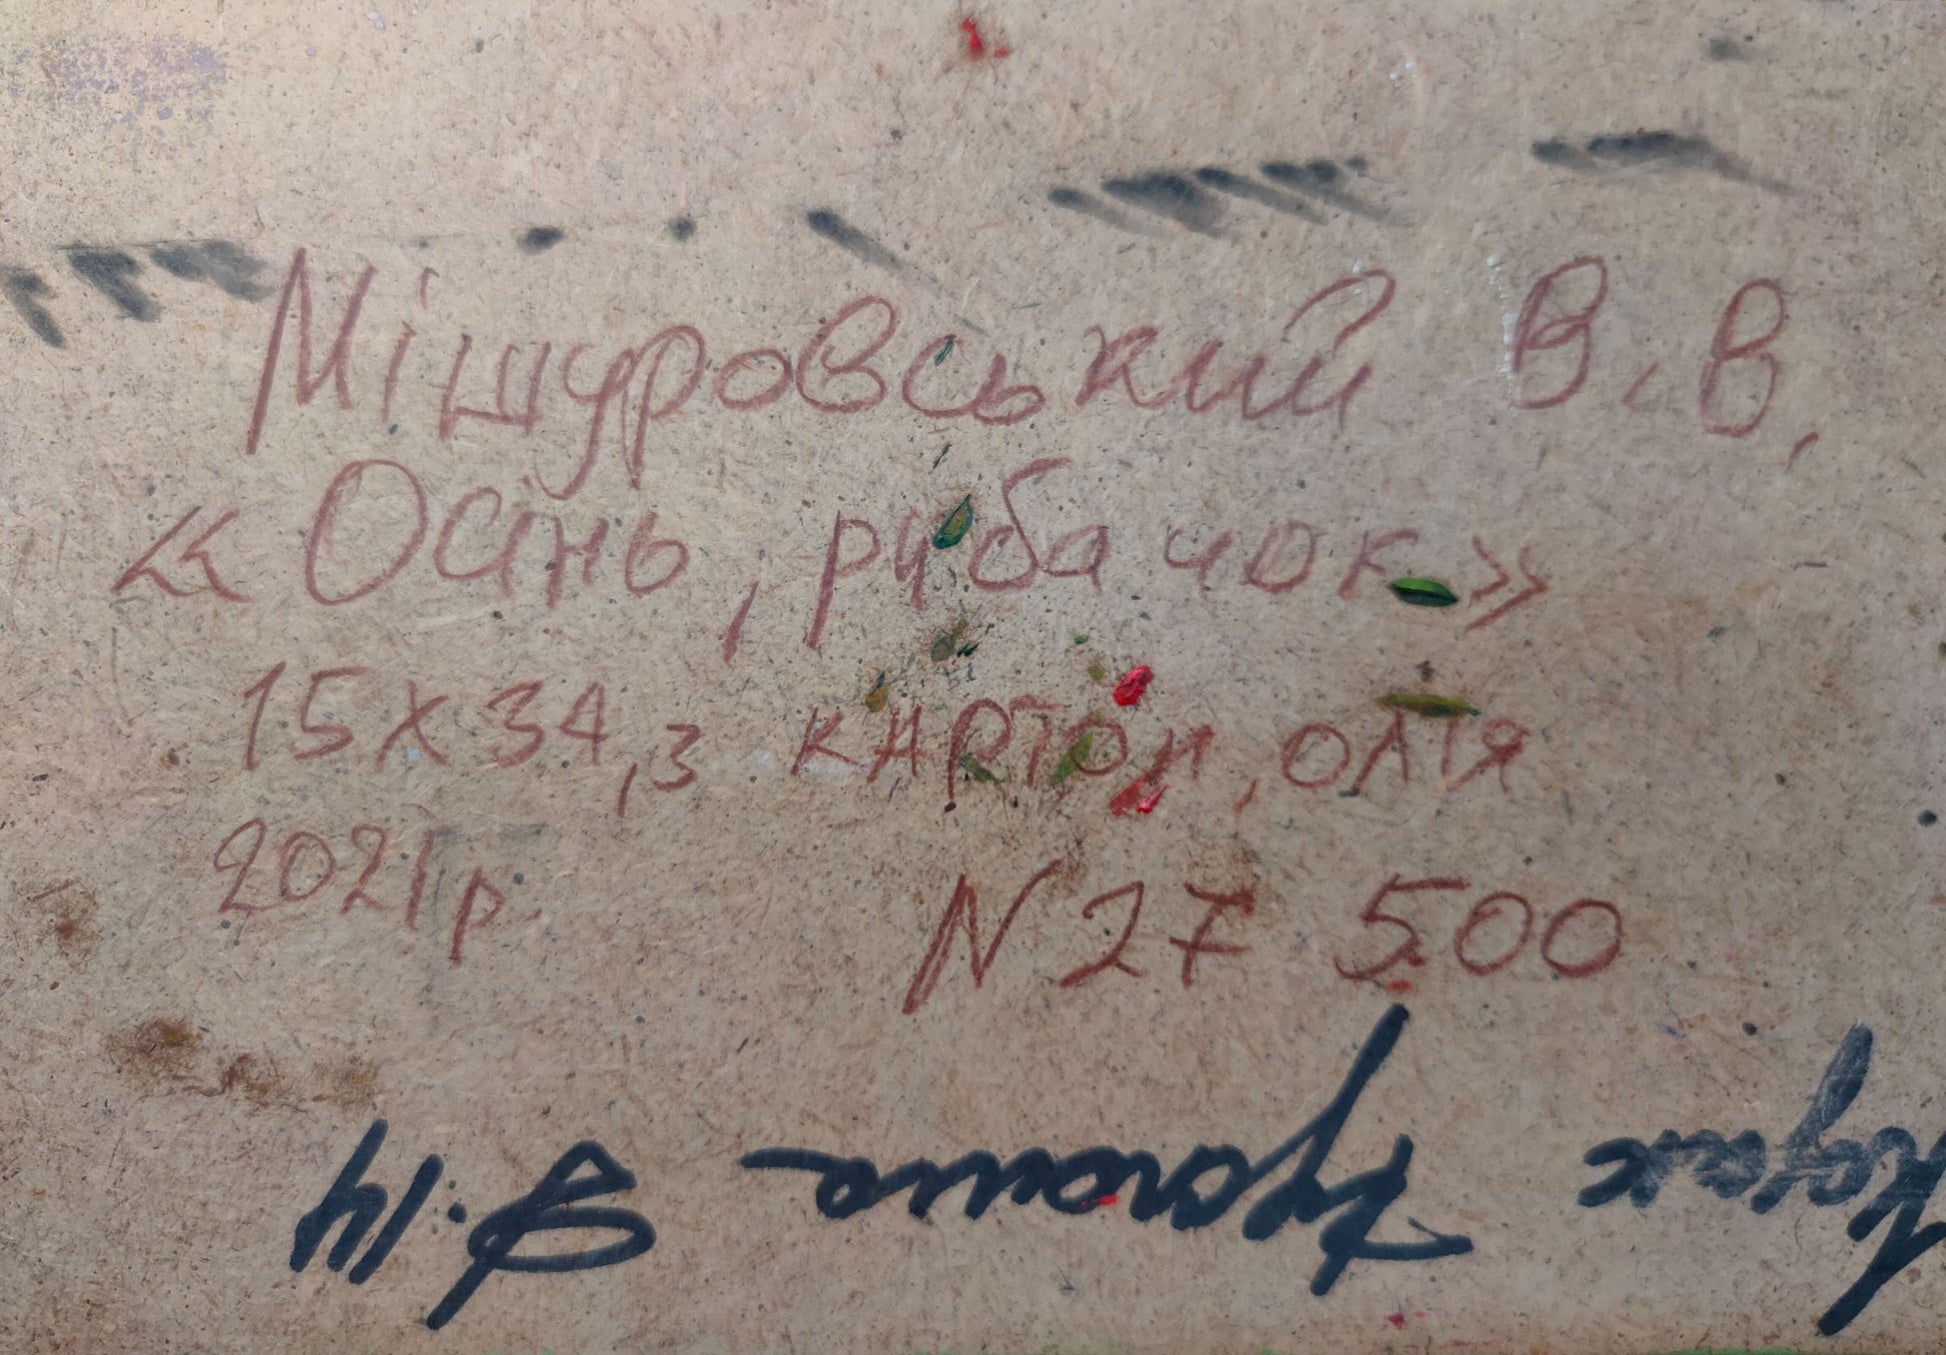 Мішуровський В.В.
«Осінь, рибачок»
15х34,3 картон, олія
2021р.
N 27 500